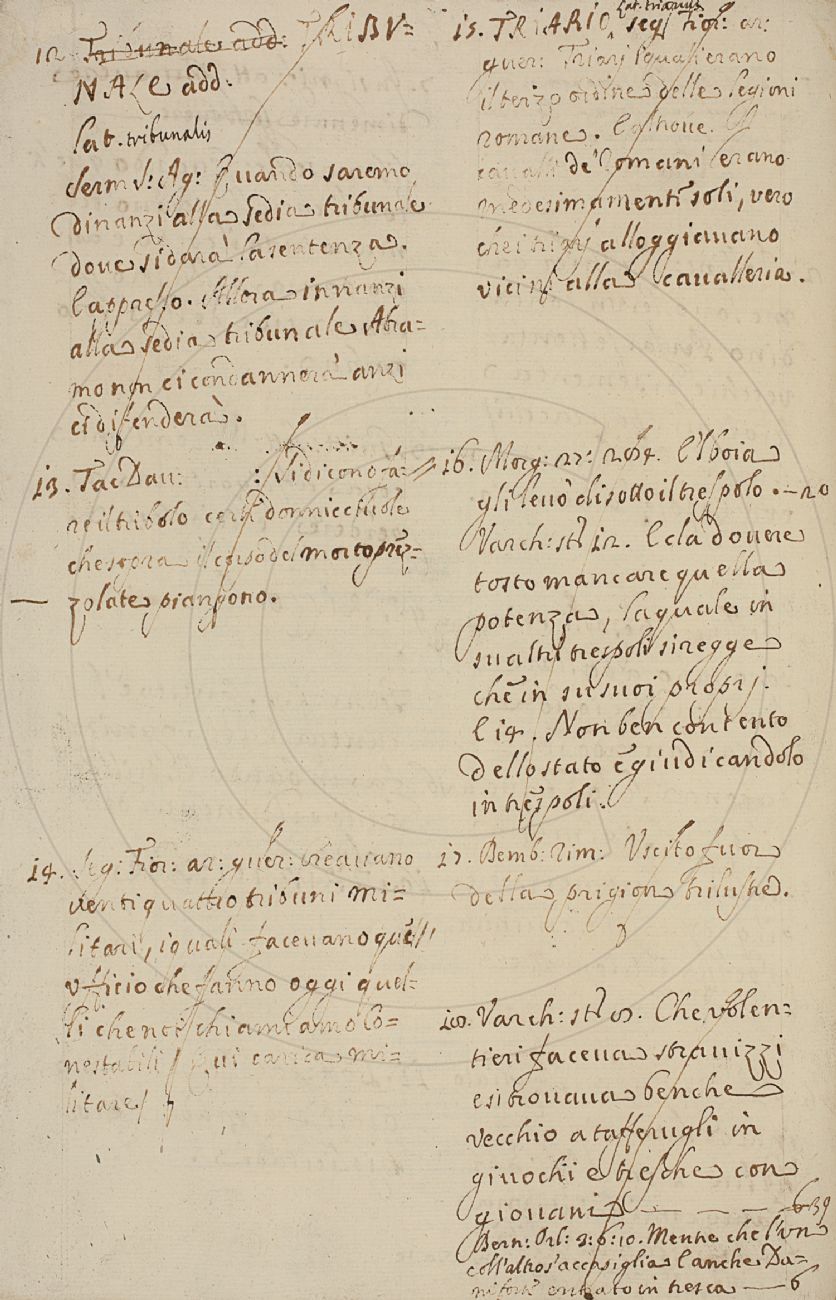 12. Tribunale add: TRIBV=
NALE add.
Lat. tribunalis
Serm S: Ag: Quando saremo
dinanzi alla sedia tribunale
doue si dara' la sentenza.
E appresso. Allora innanzi
alla sedia tribunale Abra=
mo non ci condannera' anzi
ci difenderà.
13. Tac Dau: : Si dicono fa:
re il tribolo certe donnicciuole
che sopra il corso del morto prez=
zolate piangono.
14. Seg: Fior: ar: guer: creauano
ventiquattro tribuni mi=
litari, i quali faceuano quell'
vfficio che fanno oggi quel=
li che noi chiamiamo Co=
nestabili / Qui carica mi=
litare /
15. TRIARIO, Lat. triarius Seg Fior: ar:
guer: Triarj i quali erano
il terzo ordine delle legioni
romane. E altroue. I
caualli de' Romani erano
medesimamente soli, vero
che i triarj alloggiauano
vicini alla caualleria.
16. Morg: 27: 264. E 'l boia
gli leuò di sotto il trespolo. — 20
Varch: st: 12. E la douere
tosto mancare quella
potenza, la quale in
su altri trespoli si regge
che in su suoi proprj.
E 14. Non ben contento
dello stato e giudicandolo
in trespoli.
17. Bemb: Rim: Vscito fuor
della prigion trilustre.
18. Varch: st: Che volen=
tieri faceua strauizzi
e si trouaua benche
vecchio a tafferugli in
giuochi e tresche con
giouani — — — 639
Bern: Orl: 2: 6: 10. Mentre che l'vn
coll'altro s'accosiglia E anche Da=
entrato in tresca — 6